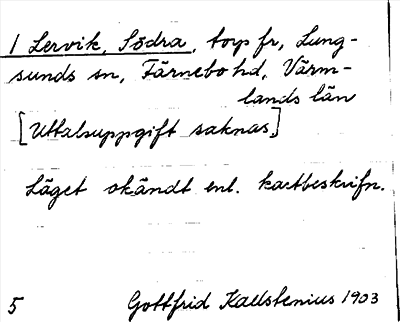 1 Lervik, Södra, torp fr, Lung-
sunds sn, Färnebo hd, Värm-
lands län
[Uttalsuppgift saknas.]
Läget okändt enl. kartbeskrifn.
5 Gottfrid Kallstenius 1903